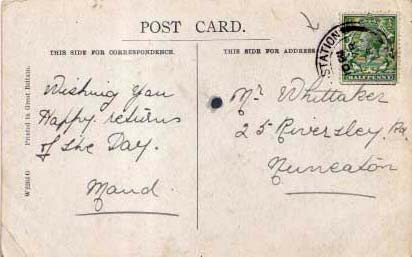 POST CARD.
THIS SIDE FOR CORRESPONDENCE.
THIS SIDE FOR ADDRESS
STATION
HALFPENNY
Printed in Great Britain.
Wishing You
Happy returns
of the Day.
Maud.
Mr Whittaker
25 Riversley Rd
Nuneaton